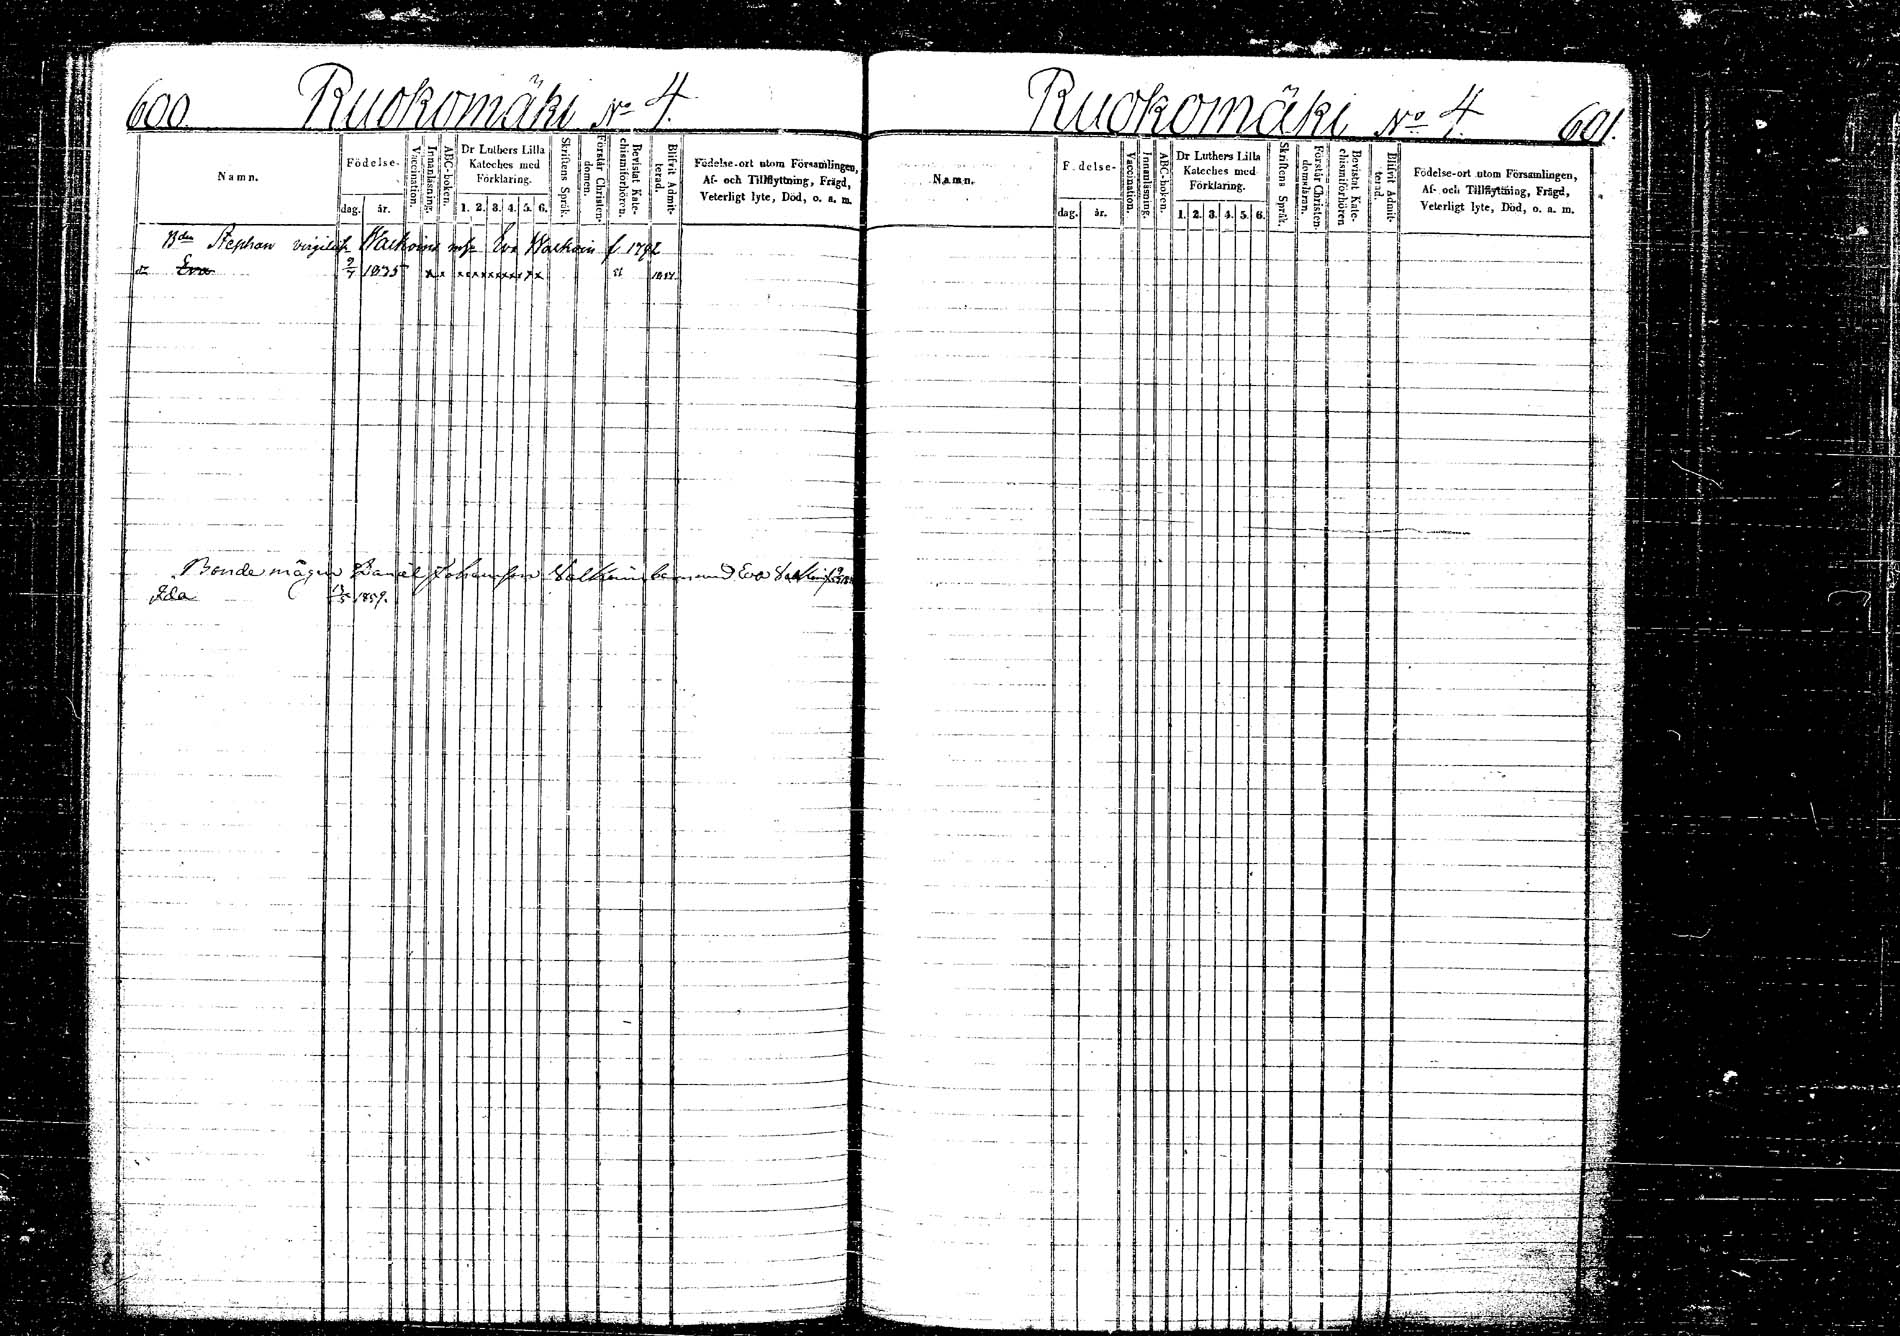 600 Ruokomäki No 4.
Namn.
Födelse-
dag. år.
Vaccination.
Innanläsning.
ABC-boken.
Dr Luthers Lilla
Kateches med
Förklaring.
1. 2. 3. 4. 5. 6.
Skriftens Språk.
Förstår Christen-
domen.
Bevistat Kate-
chismiförhören.
Blifvit Admit-
terad.
Födelse-ort utom Församlingen,
Af- och Tillflyttning, Frägd,
Veterligt lyte, Död, o. a. m.
Bdn Stephan Eva f 1792
Eva 9/7 1835 x x x x x x x x x x x
Bonde mågen Daniel Johansson Valkoin barn med Eva
Ida 1859.
Ruokomäki No 4. 601.
Namn.
Födelse-
dag. år.
Vaccination.
Innanläsning.
ABC-boken.
Dr Luthers Lilla
Kateches med
Förklaring.
1. 2. 3. 4. 5. 6.
Skriftens Språk.
Förstår Christen-
domsläran.
Bevistat Kate-
chismiförhören
Blifvit Admit-
terad.
Födelse-ort utom Församlingen,
Af- och Tillflyttning, Frägd,
Veterligt lyte, Död, o. a. m.